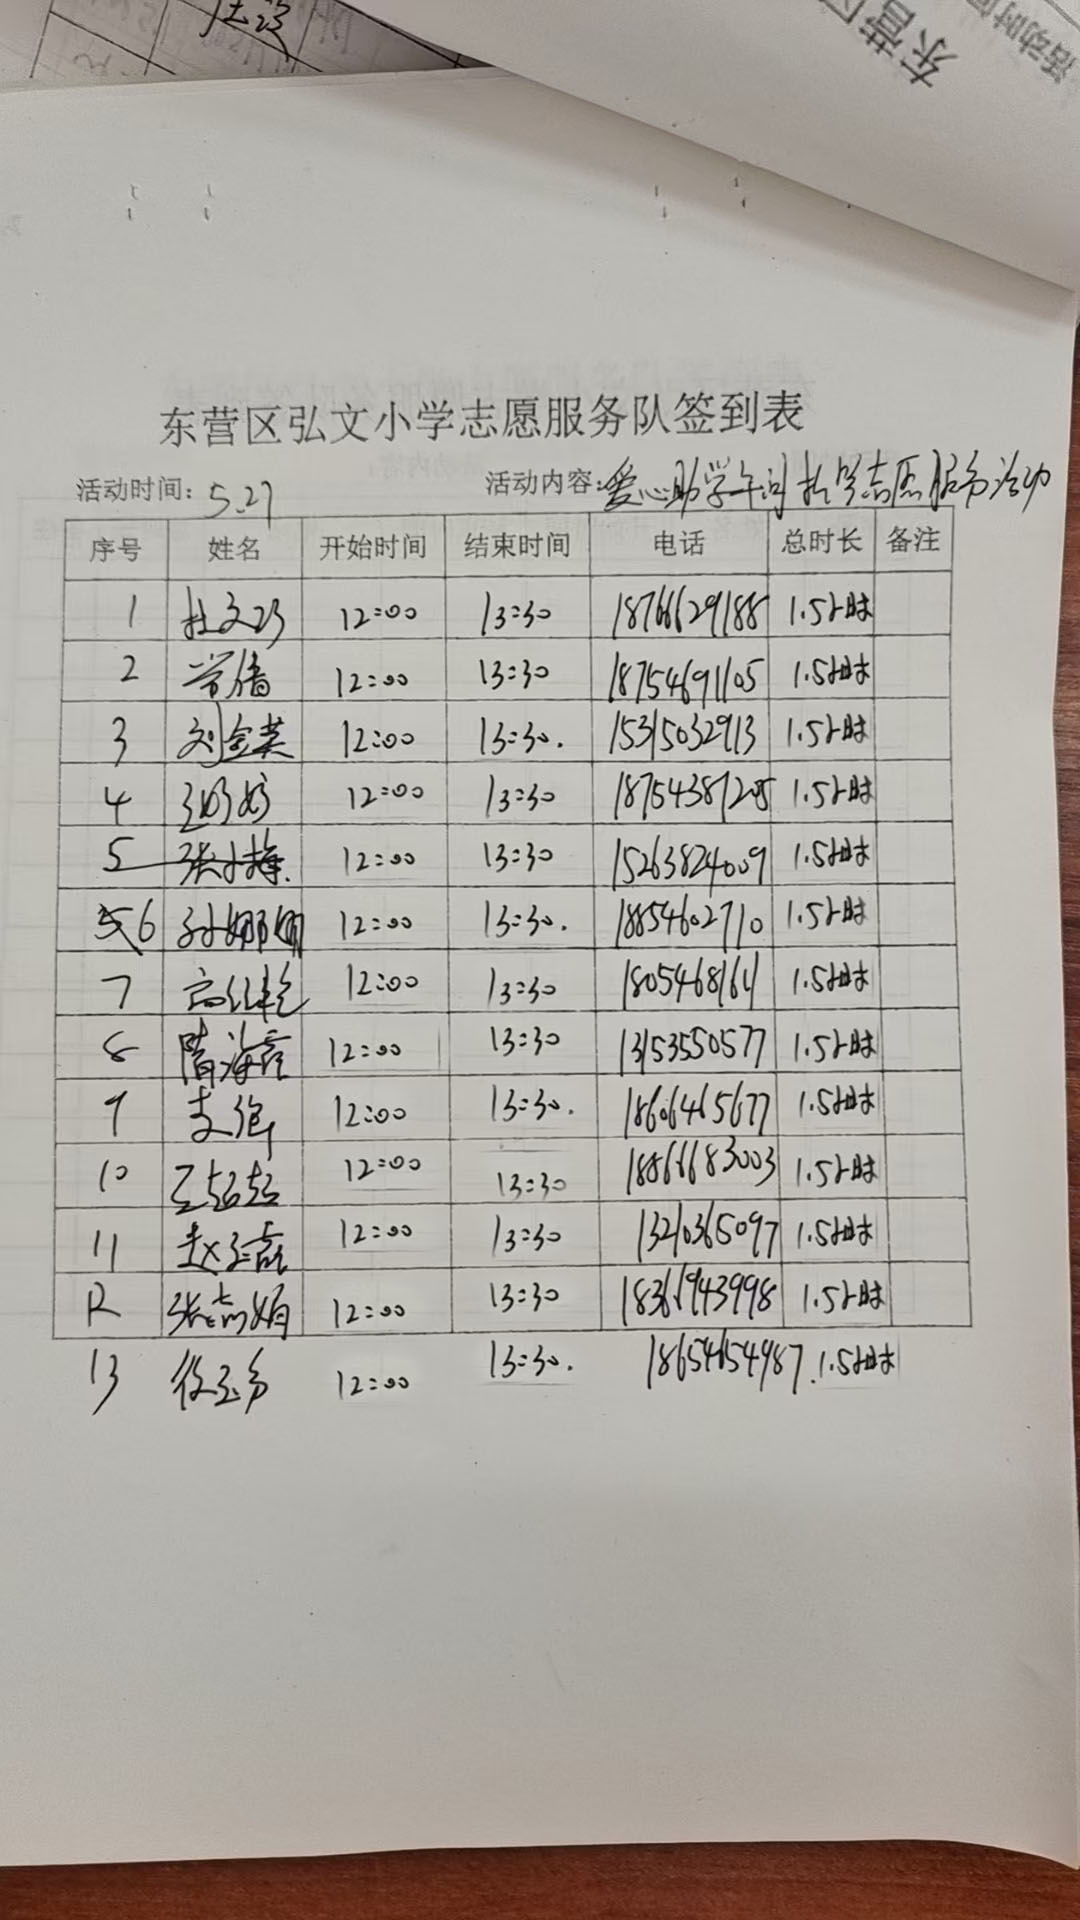 东营区弘文小学志愿服务队签到表
活动时间: 5.27 活动内容: 爱心助学午间托管志愿服务活动
序号 姓名 开始时间 结束时间 电话 总时长 备注
1 杜文巧 12:00 13:30 18766629188 1.5小时
2 常倩 12:00 13:30 18754691105 1.5小时
3 刘金英 12:00 13:30. 15315032913 1.5小时
4 12:00 13:30 18754387205 1.5小时
5 张小梅. 12:00 13:30 15263824009 1.5小时
6 孙娜娜 12:00 13:30. 18854602710 1.5小时
7 高红艳 12:00 13:30 18054681611 1.5小时
8 隋海霞 12:00 13:30 13153550577 1.5小时
9 12:00 13:30. 18606465677 1.5小时
10 王超超 12:00 13:30 18866683003 1.5小时
11 赵玉磊 12:00 13:30 13210365097 1.5小时
12 张志娟 12:00 13:30 18366943998 1.5小时
13 12:00 13:30. 18654654987. 1.5小时
东营区
活动时间